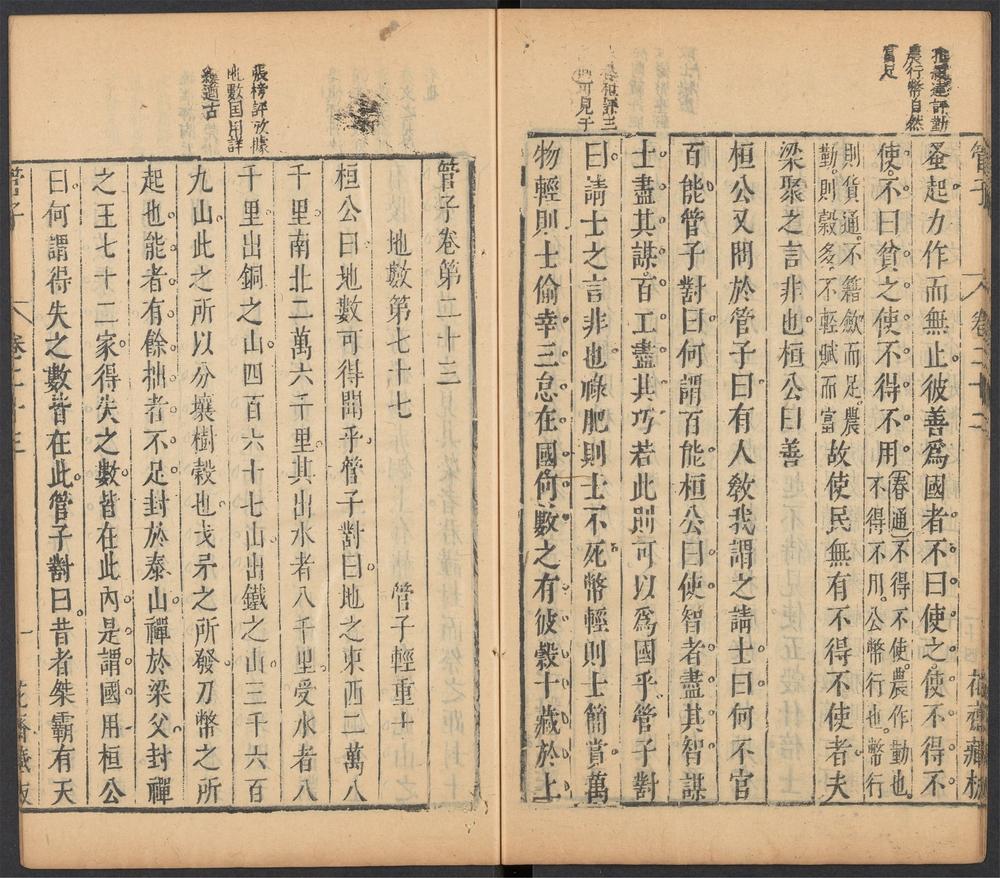 蚤起力作而無止彼善爲國者不曰使之使不得不
使不曰貧之使不得不用春通不得不使農作勤也
不得不用公幣行也幣行
則貨通不籍歛而足農
勤則穀多不輕賦而富故使民無有不得不使者夫
梁聚之言非也桓公曰善
桓公又問於管子曰有人敎我謂之請士曰何不官
百能管子對曰何謂百能桓公曰使智者盡其智謀
士盡其謀百工盡其巧若此則可以爲國乎管子對
曰請士之言非也祿肥則士不死幣輕則士簡賞萬
物輕則士偷幸三怠在國何數之有彼穀十藏於上
農行幣自然
富足
可見于
管子
花齋藏板
管子卷第二十三
地數第七十七
管子輕重十
桓公曰地數可得聞乎管子對曰地之東西二萬八
千里南北二萬六千里其出水者八千里受水者八
千里出銅之山四百六十七山出鐵之山三千六百
九山此之所以分壤樹穀也戈矛之所發刀幣之所
起也能者有餘拙者不足封於泰山禪於梁父封禪
之王七十二家得失之數皆在此內是謂國用桓公
曰何謂得失之數皆在此管子對曰昔者桀霸有天
張榜評攷據
地數国用詳
管子
卷二十三
一
花齋藏板